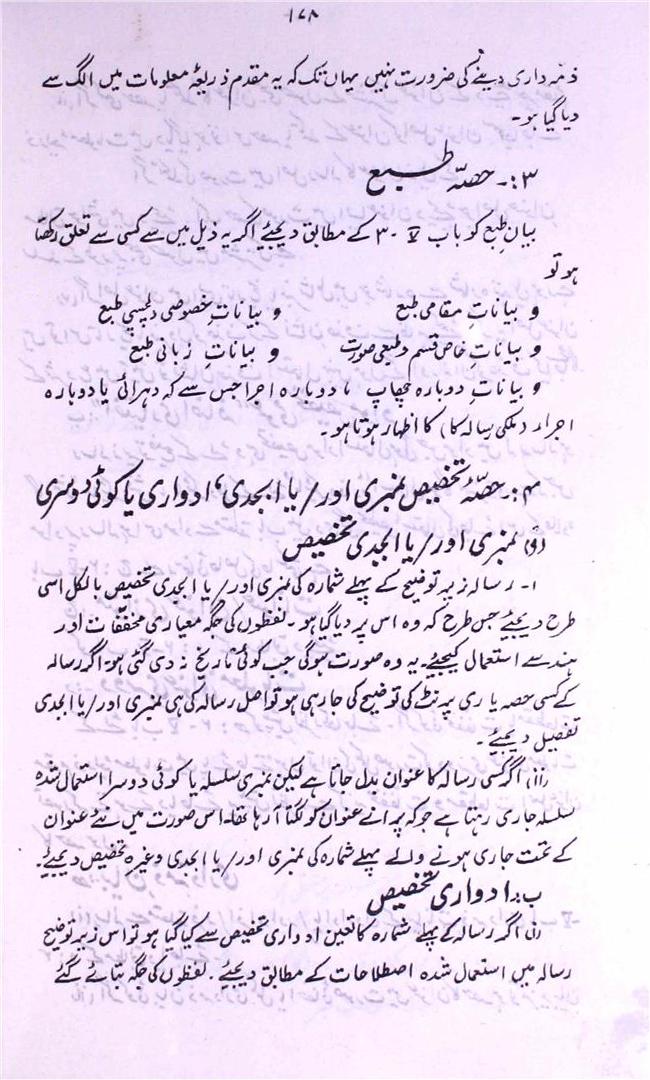 ۱۷۸
ذمہ داری دینے کی ضرورت نہیں یہاں تک کہ یہ مقدم ذریعۂ معلومات میں الگ سے
دیا گیا ہو۔
۳:۔ حصّہ طبع
بیانِ طبع کو باب V ۔ ۳ کے مطابق دیجئے اگر یہ ذیل میں سے کسی سے تعلق رکھتا
ہو تو
و بیاناتِ مقامی طبع و بیاناتِ خصوصی دلچسپی طبع
و بیاناتِ خاص قسم و طبعی صورت و بیاناتِ زبانی طبع
و بیاناتِ دوبارہ چھاپ یا دوبارہ اجرا جس سے کہ دہرائی یا دوبارہ
اجراء (ملکی رسالہ کا) کا اظہار ہوتا ہو۔
۴:۔ حصّۂ تخصیص نمبری اور/یا ابجدی، ادواری یا کوئی دوسری
(i) نمبری اور/یا ابجدی تخصیص
۱۔ رسالہ زیر توضیح کے پہلے شمارہ کی نمبری اور/یا ابجدی تخصیص بالکل اسی
طرح دیجئے جس طرح کہ وہ اس پر دیا گیا ہو۔ لفظوں کی جگہ معیاری مخففات اور
ہندسے استعمال کیجئے۔ یہ وہ صورت ہوگی جب کوئی تاریخ نہ دی گئی ہو۔ اگر رسالہ
کے کسی حصہ یا ری پرنٹ کی توضیح کی جا رہی ہو تو اصل رسالہ کی ہی نمبری اور/یا ابجدی
تفصیل دیجئے۔
(ii) اگر کسی رسالہ کا عنوان بدل جاتا ہے لیکن نمبری سلسلہ یا کوئی دوسرا استعمال شدہ
سلسلہ جاری رہتا ہے جو کہ پرانے عنوان کو لگتا آ رہا تھا۔ اس صورت میں نئے عنوان
کے تحت جاری ہونے والے پہلے شمارہ کی نمبری اور/یا ابجدی وغیرہ تخصیص دیجیئے۔
ب: ادواری تخصیص
(i) اگر رسالہ کے پہلے شمارہ کا تعین ادواری تخصیص سے کیا گیا ہو تو اس زیر توضیح
رسالہ میں استعمال شدہ اصطلاحات کے مطابق دیجیئے۔ لفظوں کی جگہ بتائے گئے